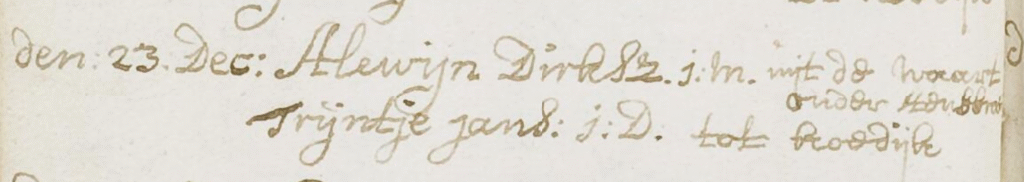 den: 23. Dec: Alewijn Dirksz. j: m. uijt de waart
onder
Trijntje jans: j: D. tot koedijk